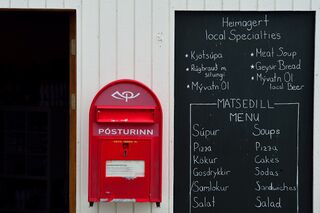 PÓSTURINN
Heimagert
local Specialties
• Kjötsúpa • Meat Soup
• Rúgbrauð m. • Geysir Bread
silungi
• Mývatn Öl • Mývatn Öl
local Beer
MATSEÐILL
MENU
Súpur Soups
Pizza Pizza
Kökur Cakes
Gosdrykkir Sodas
Samlokur Sandwiches
Salat Salad